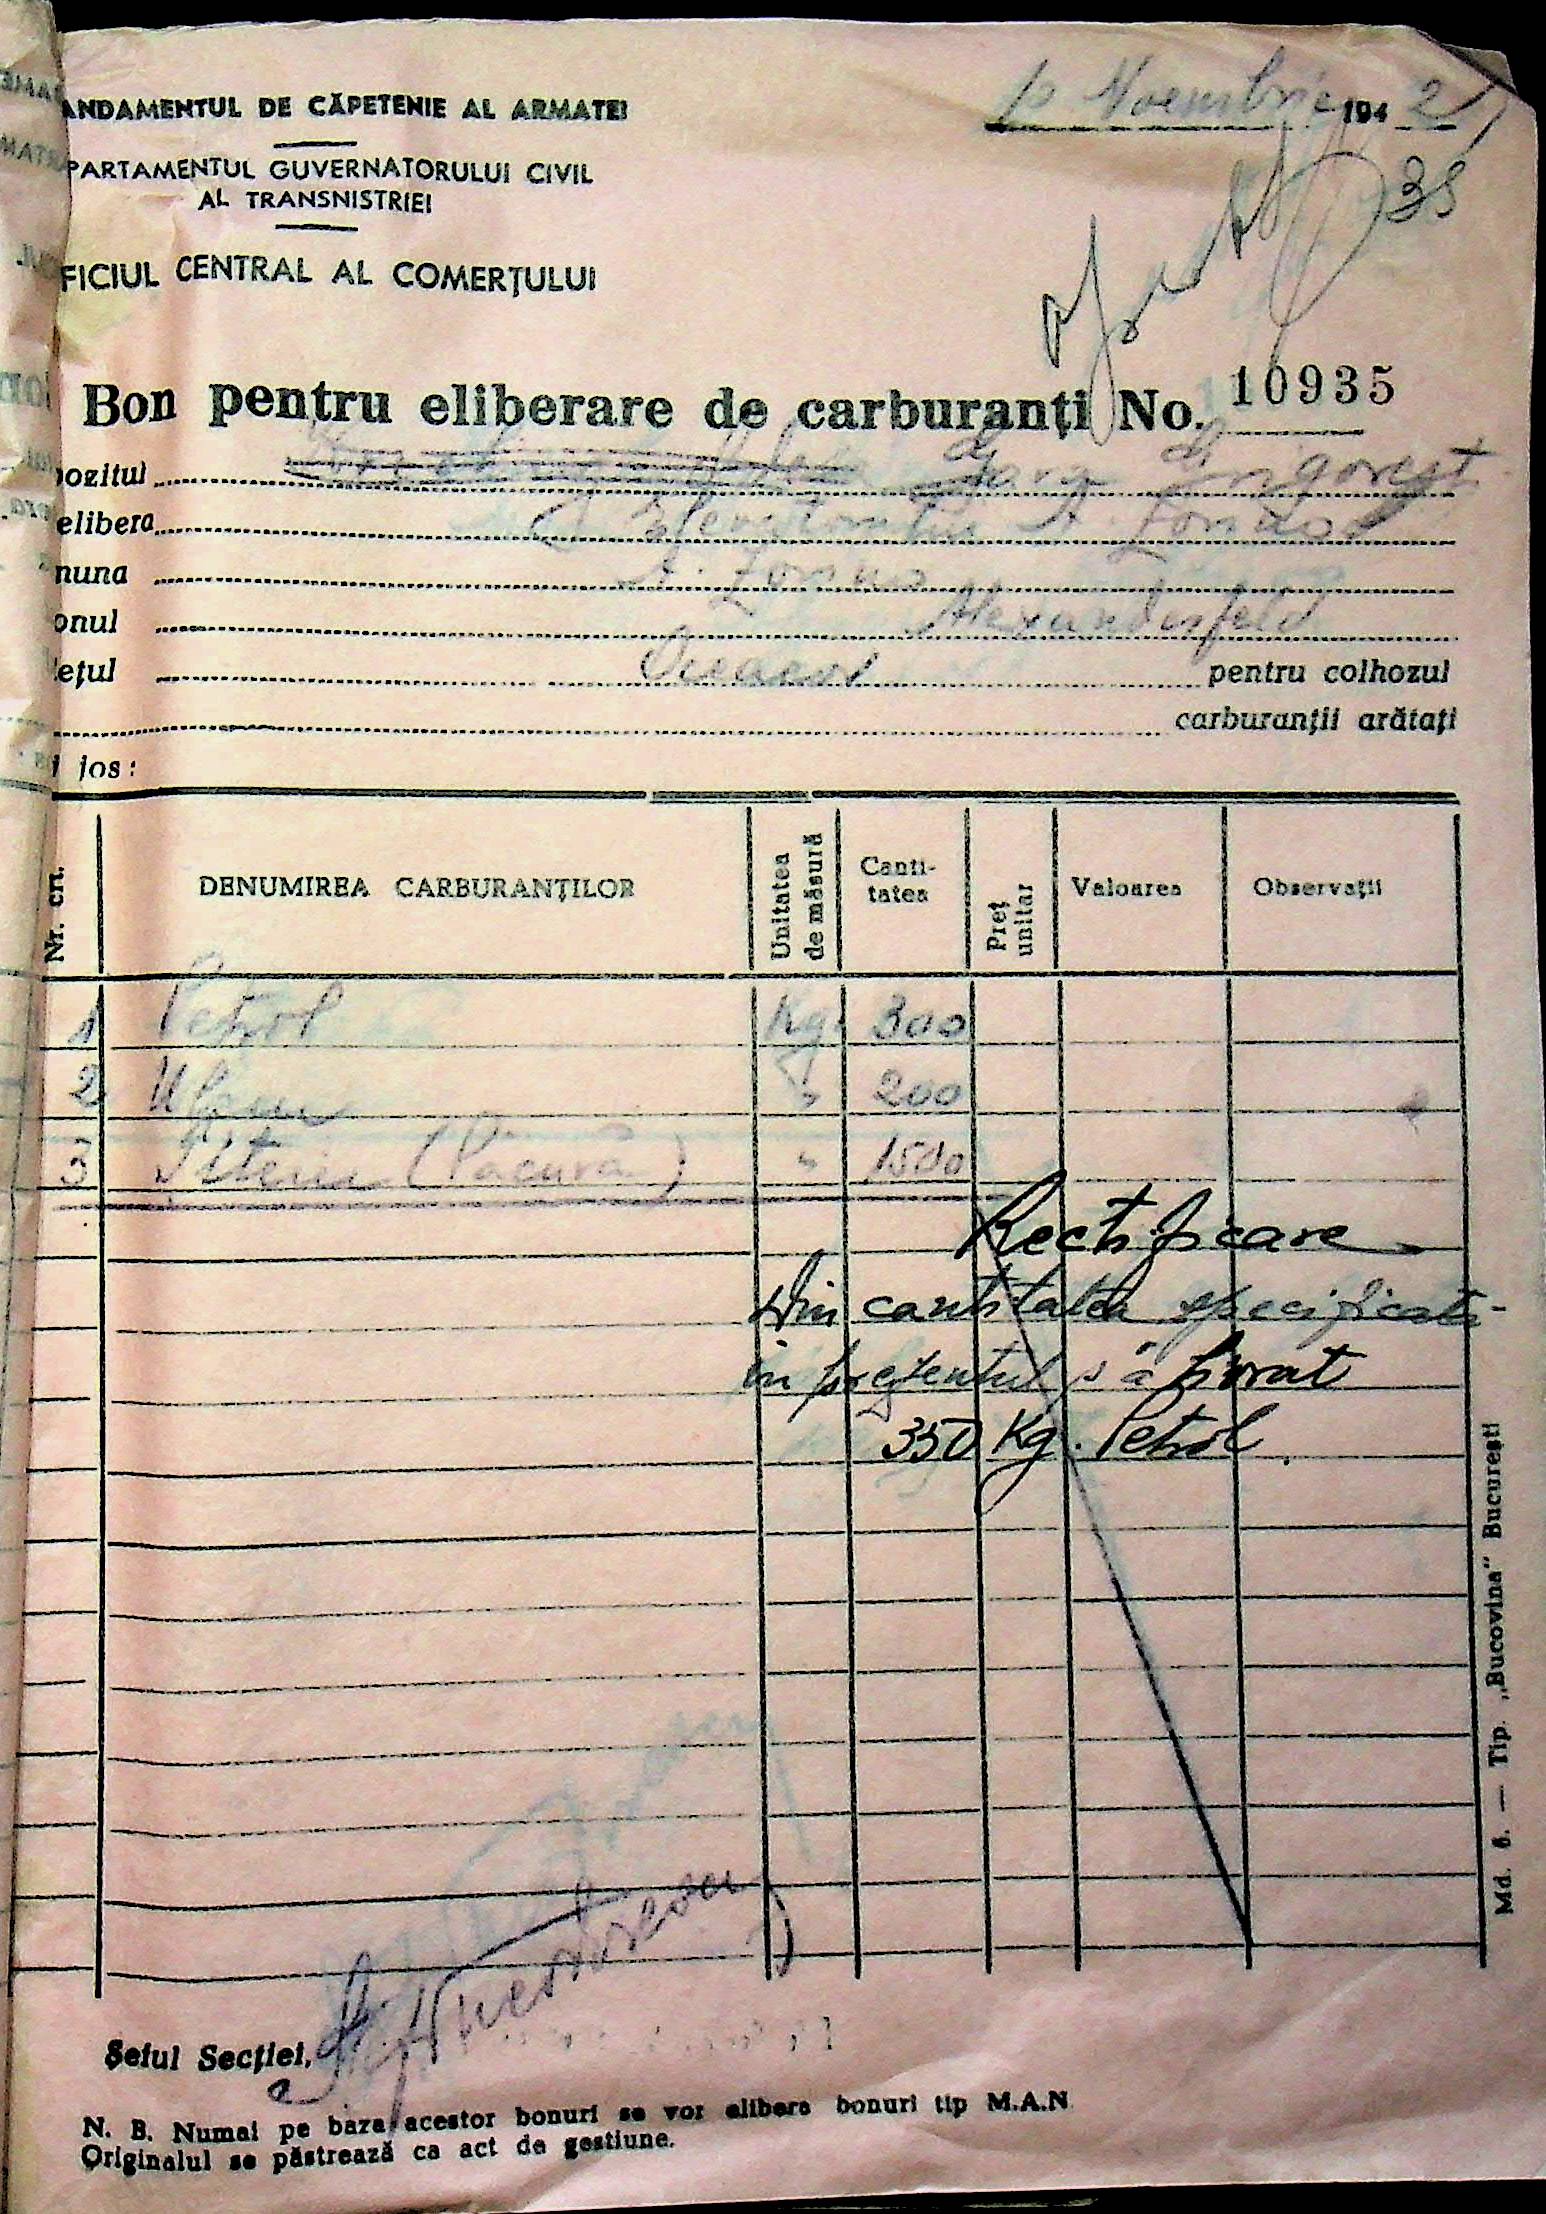 ANDAMENTUL DE CĂPETENIE AL ARMATEI
10 Noembrie 1942
PARTAMENTUL GUVERNATORULUI CIVIL
AL TRANSNISTRIEI
35
FICIUL CENTRAL AL COMERȚULUI
Bon pentru eliberare de carburanți No. 10935
pozitul Gara Grigorești
elibera
nuna
onul Alexanderfeld
lețul Oceacov pentru colhozul
carburanții arătați
i jos:
Nr. crt. DENUMIREA CARBURANȚILOR Unitatea de măsură Canti-tatea Preț unitar Valoarea Observații
1 Petrol Kg. 300
2 200
3 (Păcură) " 1500
Rectificare
din cantitatea specificată
în prezentul s'a livrat
350 Kg. Petrol.
Md. 6. — Tip. „Bucovina" București
Șeful Secției,
N. B. Numai pe baza acestor bonuri se vor elibera bonuri tip M.A.N
Originalul se păstrează ca act de gestiune.